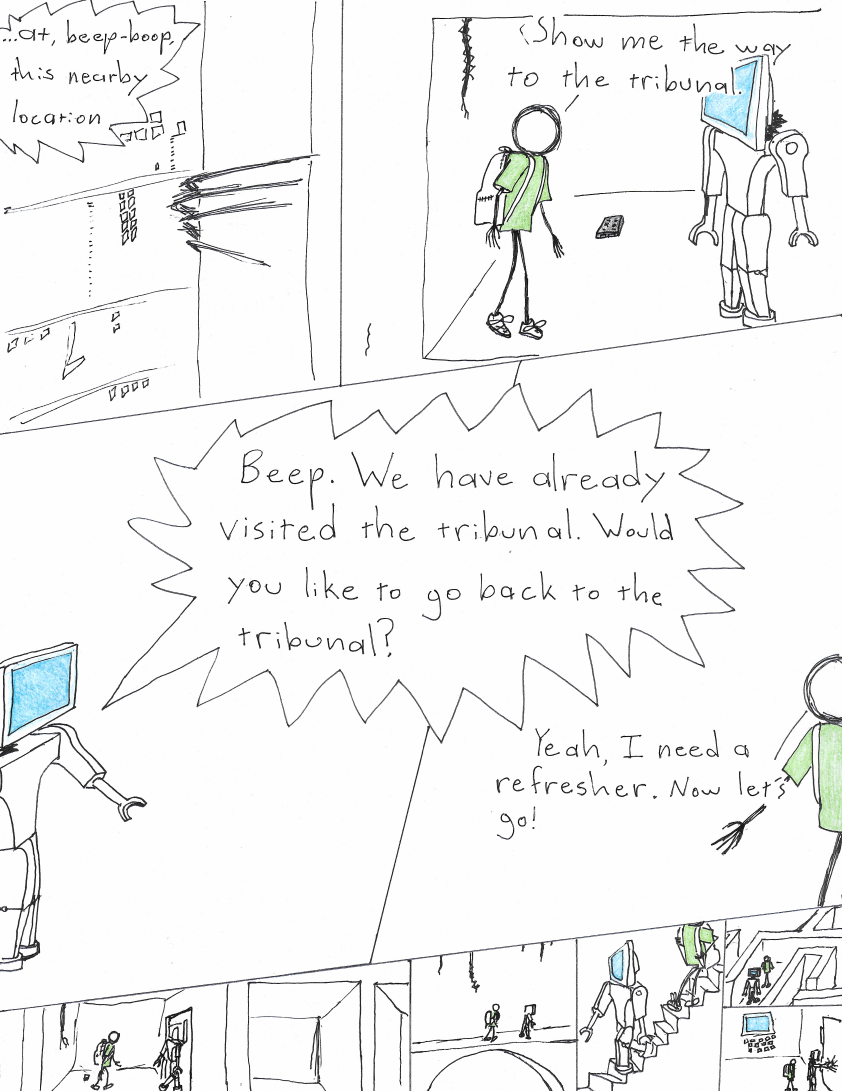 ...at, beep-boop,
this nearby
location
Show me the way
to the tribunal.
Beep. We have already
visited the tribunal. Would
you like to go back to the
tribunal?
Yeah, I need a
refresher. Now let's
go!